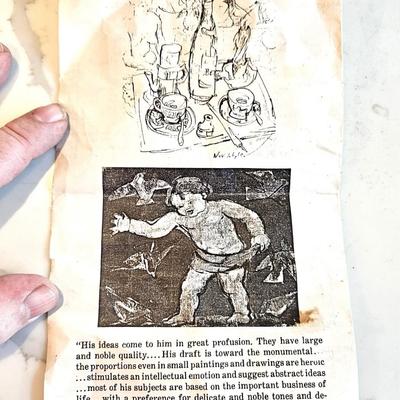 "His ideas come to him in great profusion. They have large
and noble quality.... His draft is toward the monumental..
the proportions even in small paintings and drawings are heroic
...stimulates an intellectual emotion and suggest abstract ideas
...most of his subjects are based on the important business of
life... with a preference for delicate and noble tones and de-